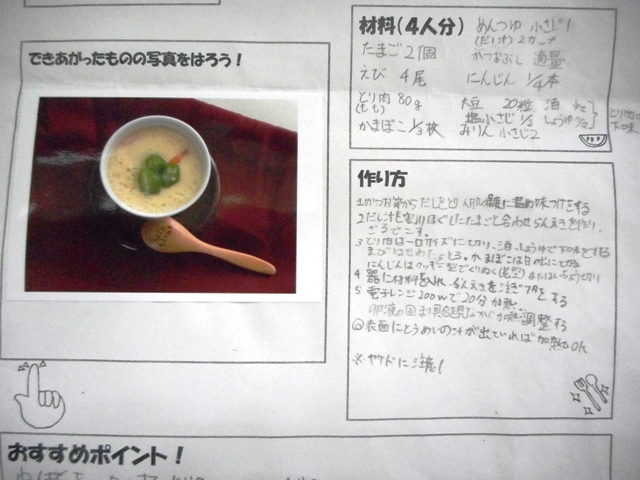 できあがったものの写真をはろう!
材料(4人分) めんつゆ 小さじ1
たまご2個 (だし) 2カップ
かつおぶし 適量
えび 4尾 にんじん 1/4本
とり肉 80g 大豆 20粒 酒
(もも) 塩小さじ1/3 しょうゆ
かまぼこ1/3枚 みりん小さじ2
とり肉の
下味
作り方
1.かつお節からだしをとり 温め味つけをする
2 だし汁を ほぐしたたまごと合わせらんえきを作り、
ざるでこす。
3 とり肉は一口サイズに切り、酒、しょうゆで下味をする
えびはせわたをとる。かまぼこは 切る
にんじんはクッキー型でくりぬく 切り
4 器に材料を入れ、らんえきを注ぎフタをする
5 電子レンジ200wで20分加熱
卵液の固まり具合を 加熱調整する
◎表面にとうめいの汁が出ていれば加熱OK
※ヤケドに注意!
おすすめポイント!